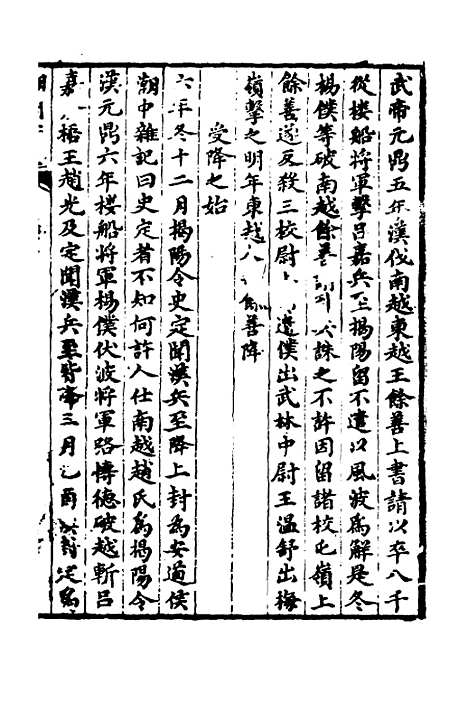 武帝元鼎五年漢伐南越東越王餘善上書請以卒八千
從樓船將軍擊呂嘉兵至揭陽留不遣以風波為解是冬
楊僕等破南越餘善誅之不許因留諸校屯嶺上
餘善遂反殺三校尉遣僕出武林中尉王溫舒出梅
嶺擊之明年東越八餘善降
受降之始
六年冬十二月揭陽令史定聞漢兵至降上封為安道侯
潮中雜記曰史定者不知何許人仕南越趙氏為揭陽令
漢元鼎六年樓船將軍楊僕伏波將軍路博德破越斬呂
嘉梧王趙光及定聞漢兵至皆降三月乙酉封定為